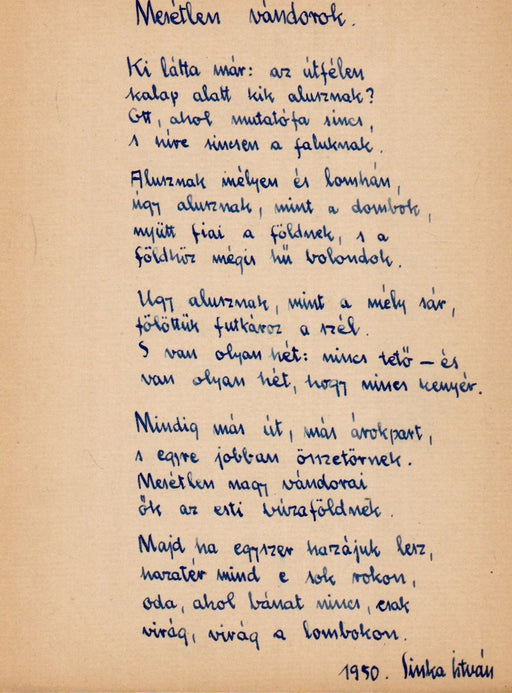 Mesétlen vándorok.
Ki látta már: az útfélen
kalap alatt kik alusznak?
Ott, ahol mutatófa sincs,
s híre sincsen a faluknak.
Alusznak mélyen és lomhán,
úgy alusznak, mint a dombok,
nyütt fiai a földnek, s a
földhöz mégis hű bolondok.
Ugy alusznak, mint a mély sár,
fölöttük futkároz a szél.
S van olyan hét: nincs tető – és
van olyan hét, hogy nincs kenyér.
Mindig más út, más árokpart,
s egyre jobban összetörnek.
Mesétlen nagy vándorai
ők az esti búzaföldnek.
Majd ha egyszer hazájuk lesz,
hazatér mind e sok rokon,
oda, ahol bánat nincs, csak
virág, virág a lombokon.
1950. Sinka István